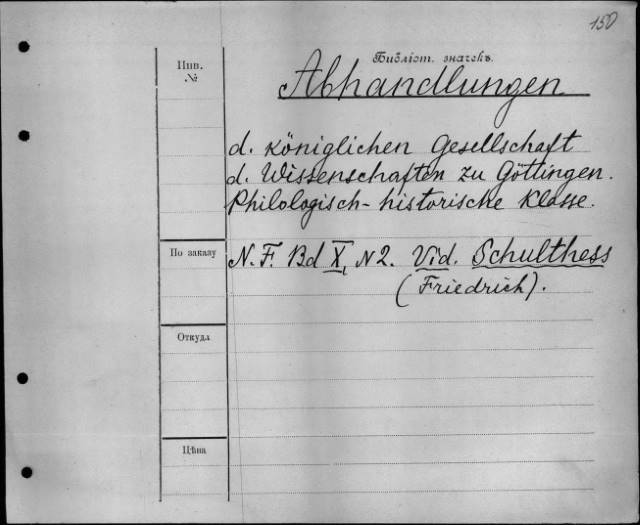 150
Библіот. значекъ.
Инв.
№
Abhandlungen
d. königlichen Gesellschaft
d. Wissenschaften zu Göttingen.
Philologisch-historische Klasse.
По заказу
N. F. Bd X, N2. Vid. Schulthess
(Friedrich).
Откуда
Цѣна